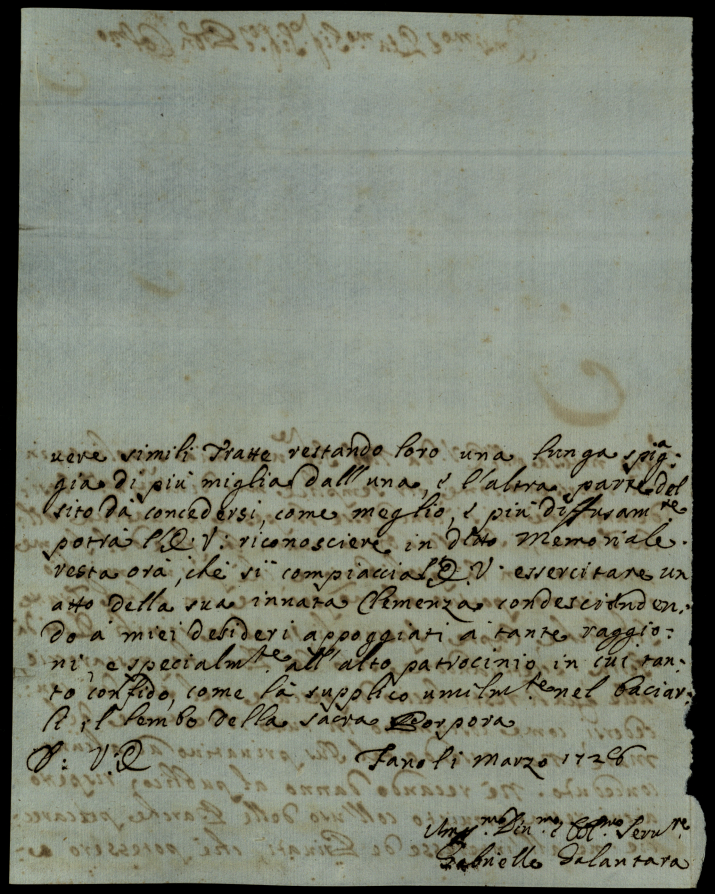 uere simili Tratte restando loro una lunga spiag-
gia di più miglia dall'una, e l'altra parte del
sito da concedersi, come meglio, e più diffusam.te
potra l'E: V: riconosciere in d.tto Memoriale.
resta ora, che si compiaccia l'E: V: essercitare un
atto della sua innata Clemenza condescienden-
do a miei desideri appoggiati a tante raggio-
ni, e specialm.te all'alto patrocinio in cui tan-
to confido, come la supplico umilm.te nel baciar-
li il lembo della sacra Porpora
D: V: E Fano li Marzo 1726
Um.mo Deu.mo e Obl.mo Seru.re
Gabrielle Dalantara